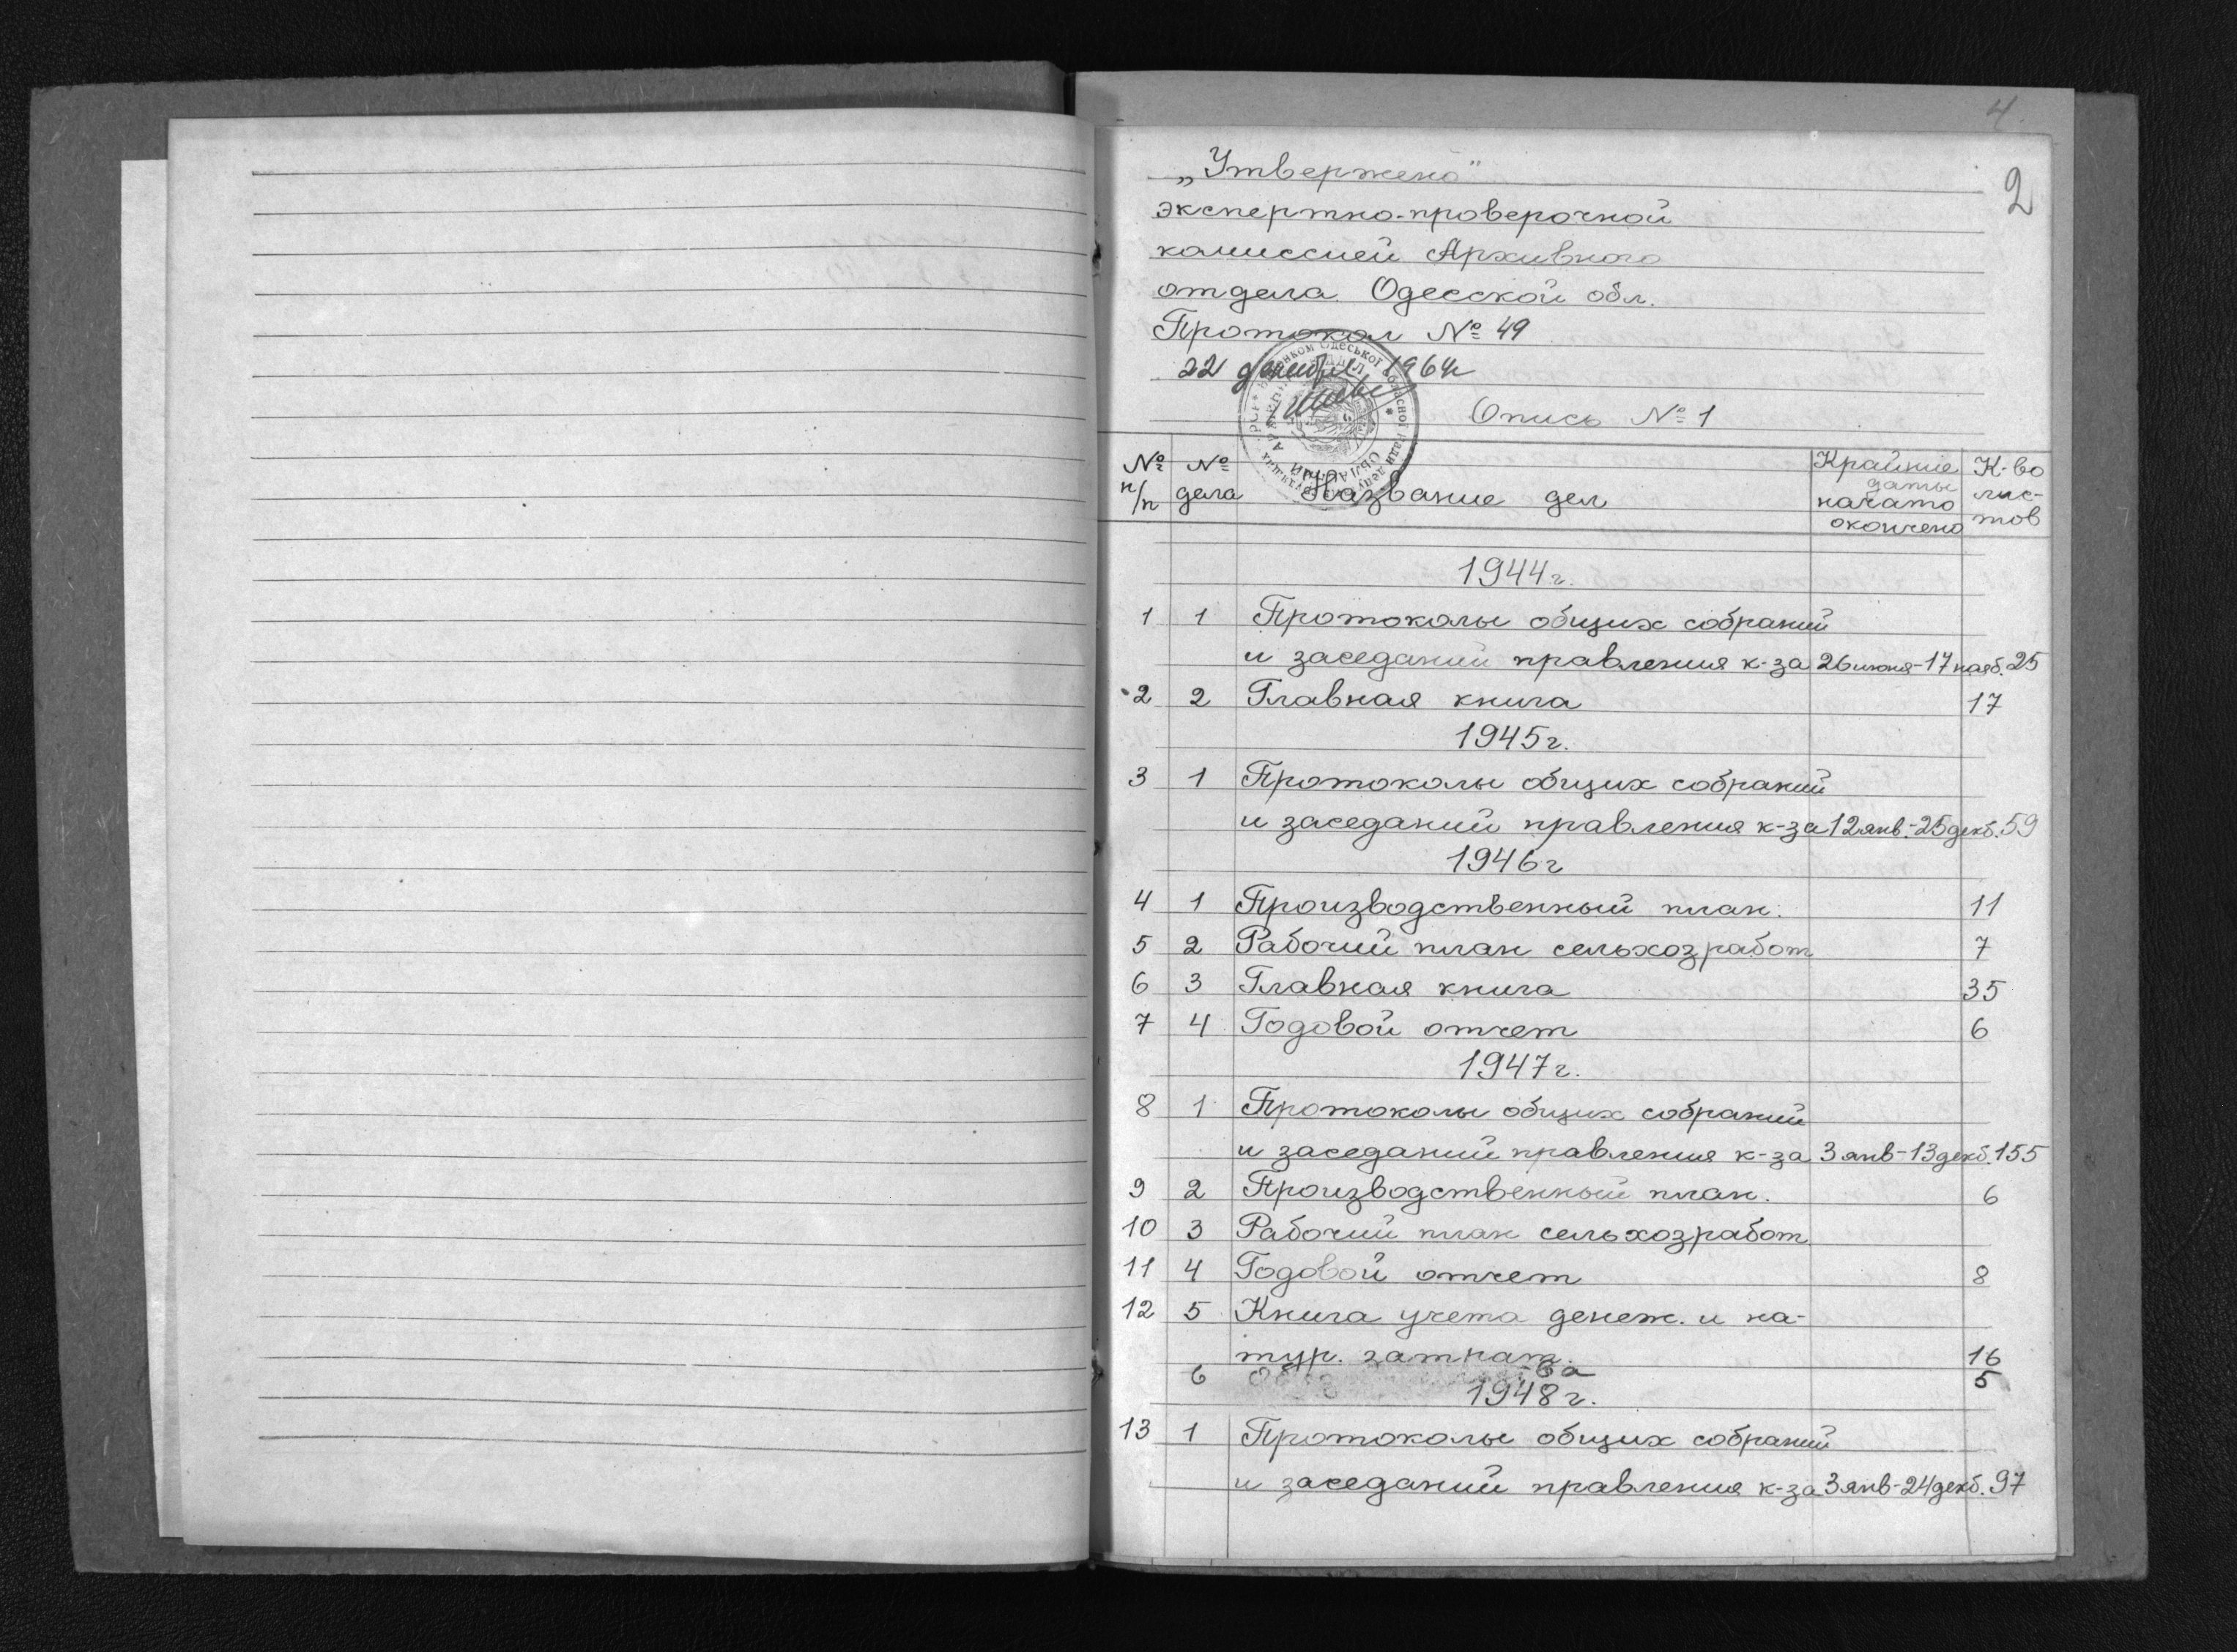 4
2
„Утвержено"
экспертно-проверочной
комиссией Архивного
отдела Одесской обл.
Протокол № 49
22 декабря 1964г
Опись № 1
№ п/п № дела Название дел Крайние даты начато окончено К-во лис-тов
1944г.
1 1 Протоколы общих собраний
и заседаний правления к-за 26июня-17нояб. 25
2 2 Главная книга 17
1945г.
3 1 Протоколы общих собраний
и заседаний правления к-за 12янв.-25декб. 59
1946г
4 1 Производственный план. 11
5 2 Рабочий план сельхозработ 7
6 3 Главная книга 35
7 4 Годовой отчет 6
1947г.
8 1 Протоколы общих собраний
и заседаний правления к-за 3янв-13декб. 155
9 2 Производственный план. 6
10 3 Рабочий план сельхозработ
11 4 Годовой отчет 8
12 5 Книга учета денеж. и на-
тур. затрат. 16
6 5
1948г.
13 1 Протоколы общих собраний
и заседаний правления к-за 3янв-24декб. 97